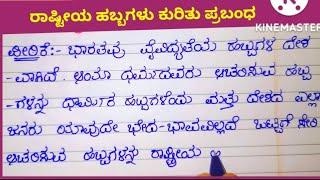 ರಾಷ್ಟ್ರೀಯ ಹಬ್ಬಗಳು ಕುರಿತು ಪ್ರಬಂಧ
KINEMASTER
ಪೀಠಿಕೆ:- ಭಾರತವು ವೈವಿಧ್ಯತೆಯ ಹಬ್ಬಗಳ ದೇಶ
-ವಾಗಿದೆ. ಆಯಾ ಧರ್ಮದವರು ಆಚರಿಸುವ ಹಬ್ಬ
-ಗಳನ್ನು ಧಾರ್ಮಿಕ ಹಬ್ಬಗಳೆಂದು ಮತ್ತು ದೇಶದ ಎಲ್ಲಾ
ಜನರು ಯಾವುದೇ ಭೇದ-ಭಾವವಿಲ್ಲದೆ ಒಟ್ಟಿಗೆ ಸೇರಿ
ಆಚರಿಸುವ ಹಬ್ಬಗಳನ್ನು ರಾಷ್ಟ್ರೀಯ